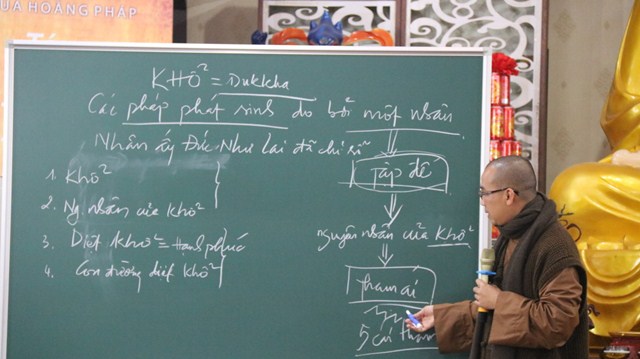 UA HOẰNG PHÁP
KHỔ = Dukkha
Các pháp phát sinh do bởi một nhân
Nhân ấy Đức Như Lai đã chỉ rõ
1. Khổ
2. Ng nhân của khổ
3. Diệt khổ = Hạnh phúc
4. Con đường diệt khổ
TẬP ĐẾ
nguyên nhân của khổ
tham ái
5 cái